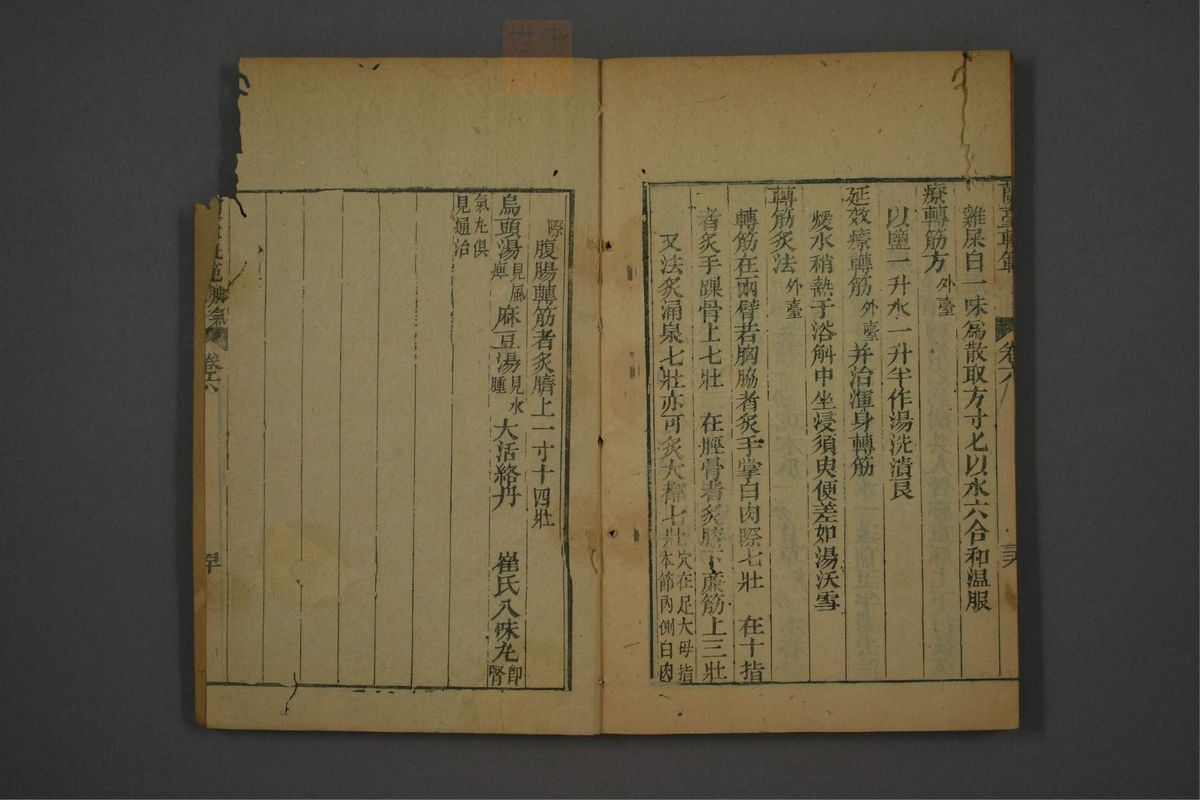 蘭臺軌範
卷六
雞屎白一味為散取方寸匕以水六合和温服
療轉筋方外臺
以鹽一升水一升半作湯洗漬良
延效療轉筋外臺并治渾身轉筋
煖水稍熱于浴斛中坐浸須臾便差如湯沃雪
轉筋炙法外臺
轉筋在兩臂若胸脇者炙手掌白肉際七壯 在十指
者炙手踝骨上七壯 在脛骨者炙膝下廉筋上三壯
又法炙涌泉七壯亦可炙大都七壯穴在足大母指
本節內側白肉
際
腹腸轉筋者炙臍上一寸十四壯
烏頭湯見風痺 麻豆湯見水腫 大活絡丹 崔氏八味丸即腎
氣丸俱
見通治
卷六